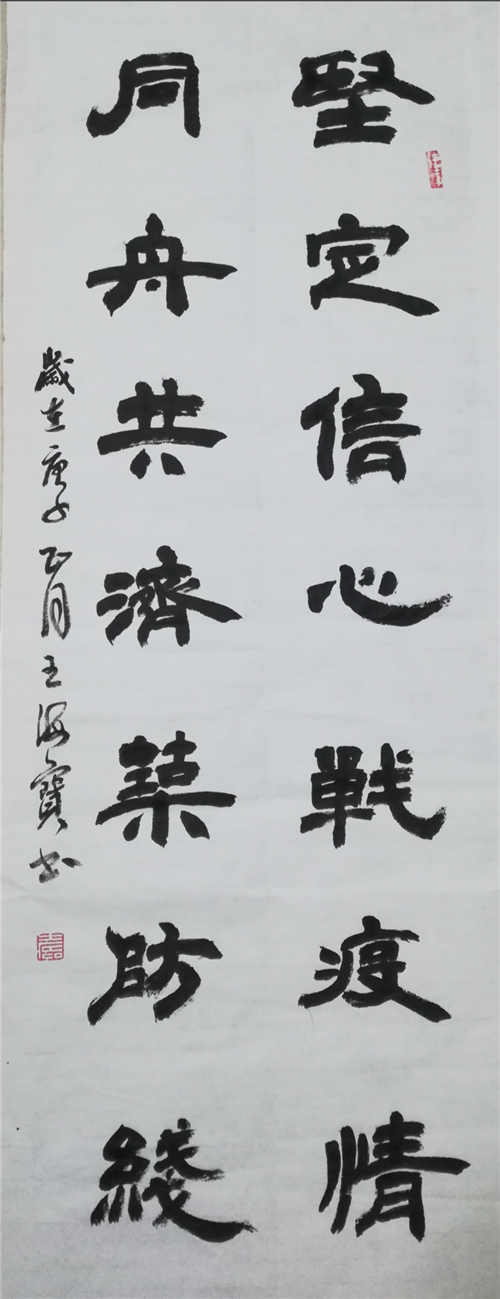 堅定信心戰疫情
同舟共濟築防綫
歲在庚子正月王海寶书